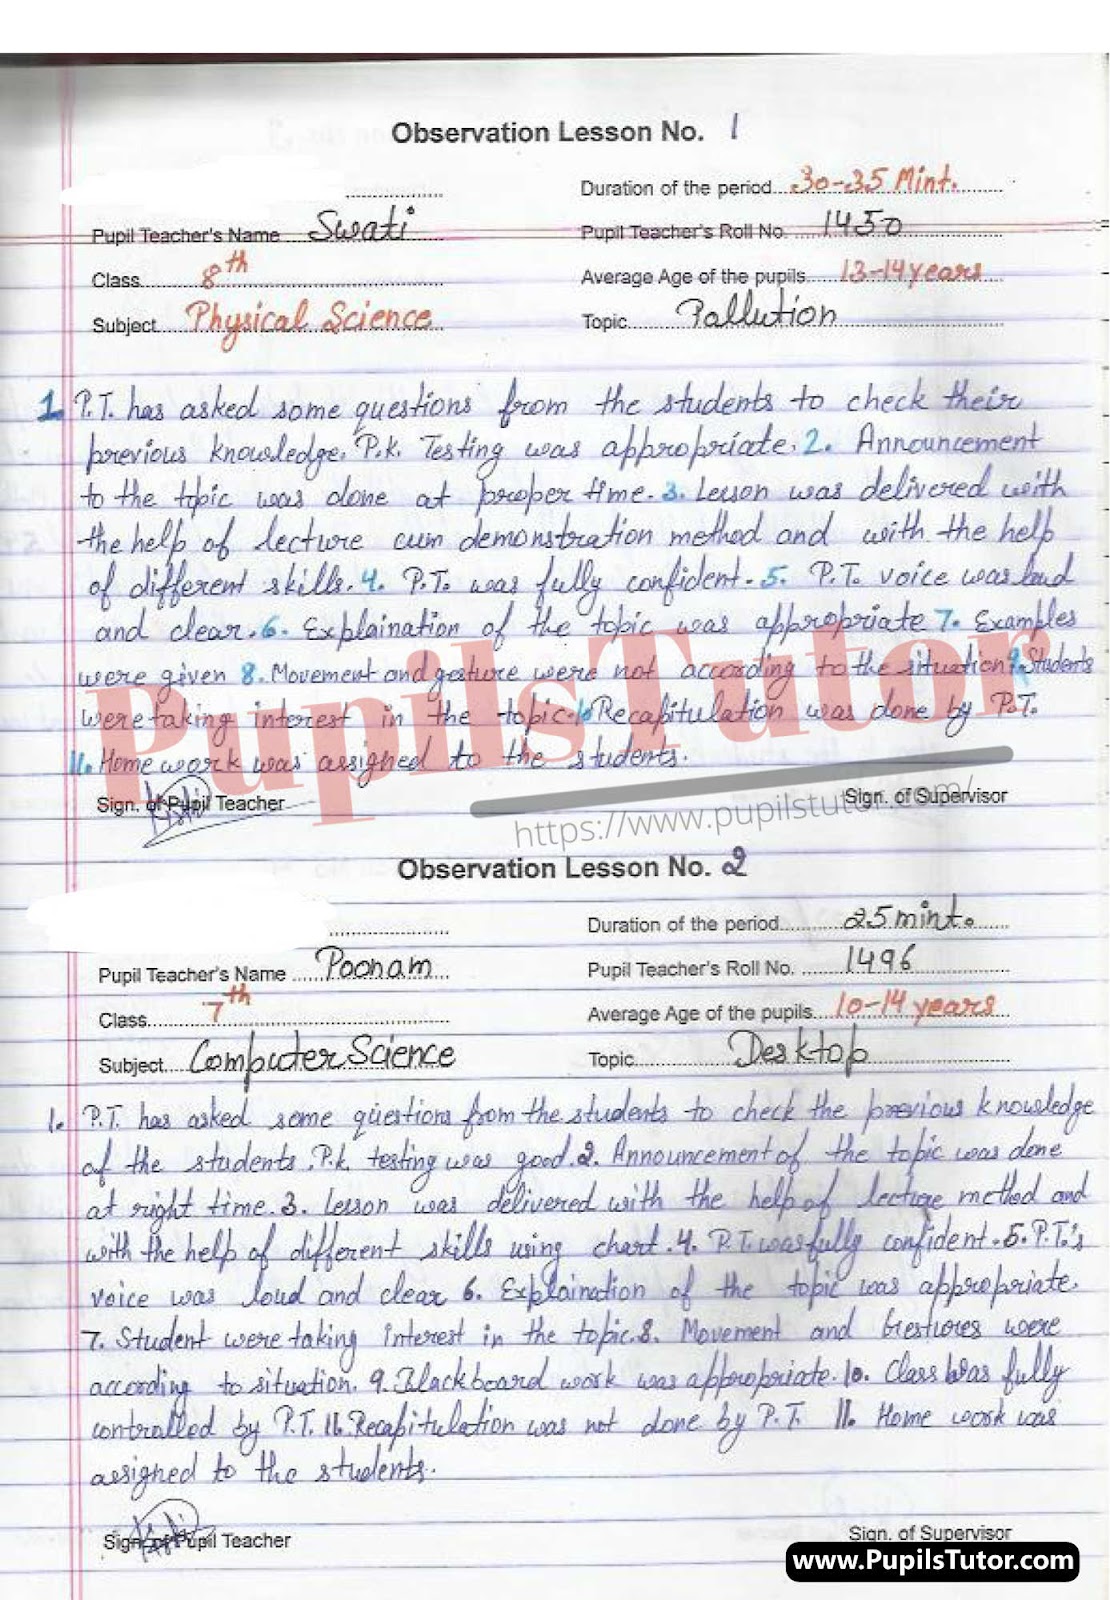 Observation Lesson No. 1
Duration of the period 30-35 Mint.
Pupil Teacher's Name Swati Pupil Teacher's Roll No. 1450
Class 8th Average Age of the pupils 13-14 years
Subject Physical Science Topic Pollution
1. P.T. has asked some questions from the students to check their
previous knowledge. P.k. Testing was appropriate. 2. Announcement
to the topic was done at proper time. 3. Lesson was delivered with
the help of lecture cum demonstration method and with the help
of different skills. 4. P.T. was fully confident. 5. P.T. voice was loud
and clear. 6. Explaination of the topic was appropriate 7. Examples
were given 8. Movement and gesture were not according to the situation. 9. Students
were taking interest in the topic. 10 Recapitulation was done by P.T.
11. Home work was assigned to the students.
PupilsTutor
Sign. of Pupil Teacher Sign. of Supervisor
https://www.pupilstutor.com/
Observation Lesson No. 2
Duration of the period 25 mint.
Pupil Teacher's Name Poonam Pupil Teacher's Roll No. 1496
Class 7th Average Age of the pupils 10-14 years
Subject Computer Science Topic Desktop
1. P.T. has asked some questions from the students to check the previous knowledge
of the students. P.k. testing was good. 2. Announcement of the topic was done
at right time. 3. Lesson was delivered with the help of lecture method and
with the help of different skills using chart. 4. P.T. was fully confident. 5. P.T.'s
voice was loud and clear 6. Explaination of the topic was appropriate.
7. Student were taking interest in the topic. 8. Movement and Gestures were
according to situation. 9. Blackboard work was appropriate. 10. Class was fully
controlled by P.T. 11. Recapitulation was not done by P.T. 11. Home work was
assigned to the students.
Sign. of Pupil Teacher Sign. of Supervisor
www.PupilsTutor.com